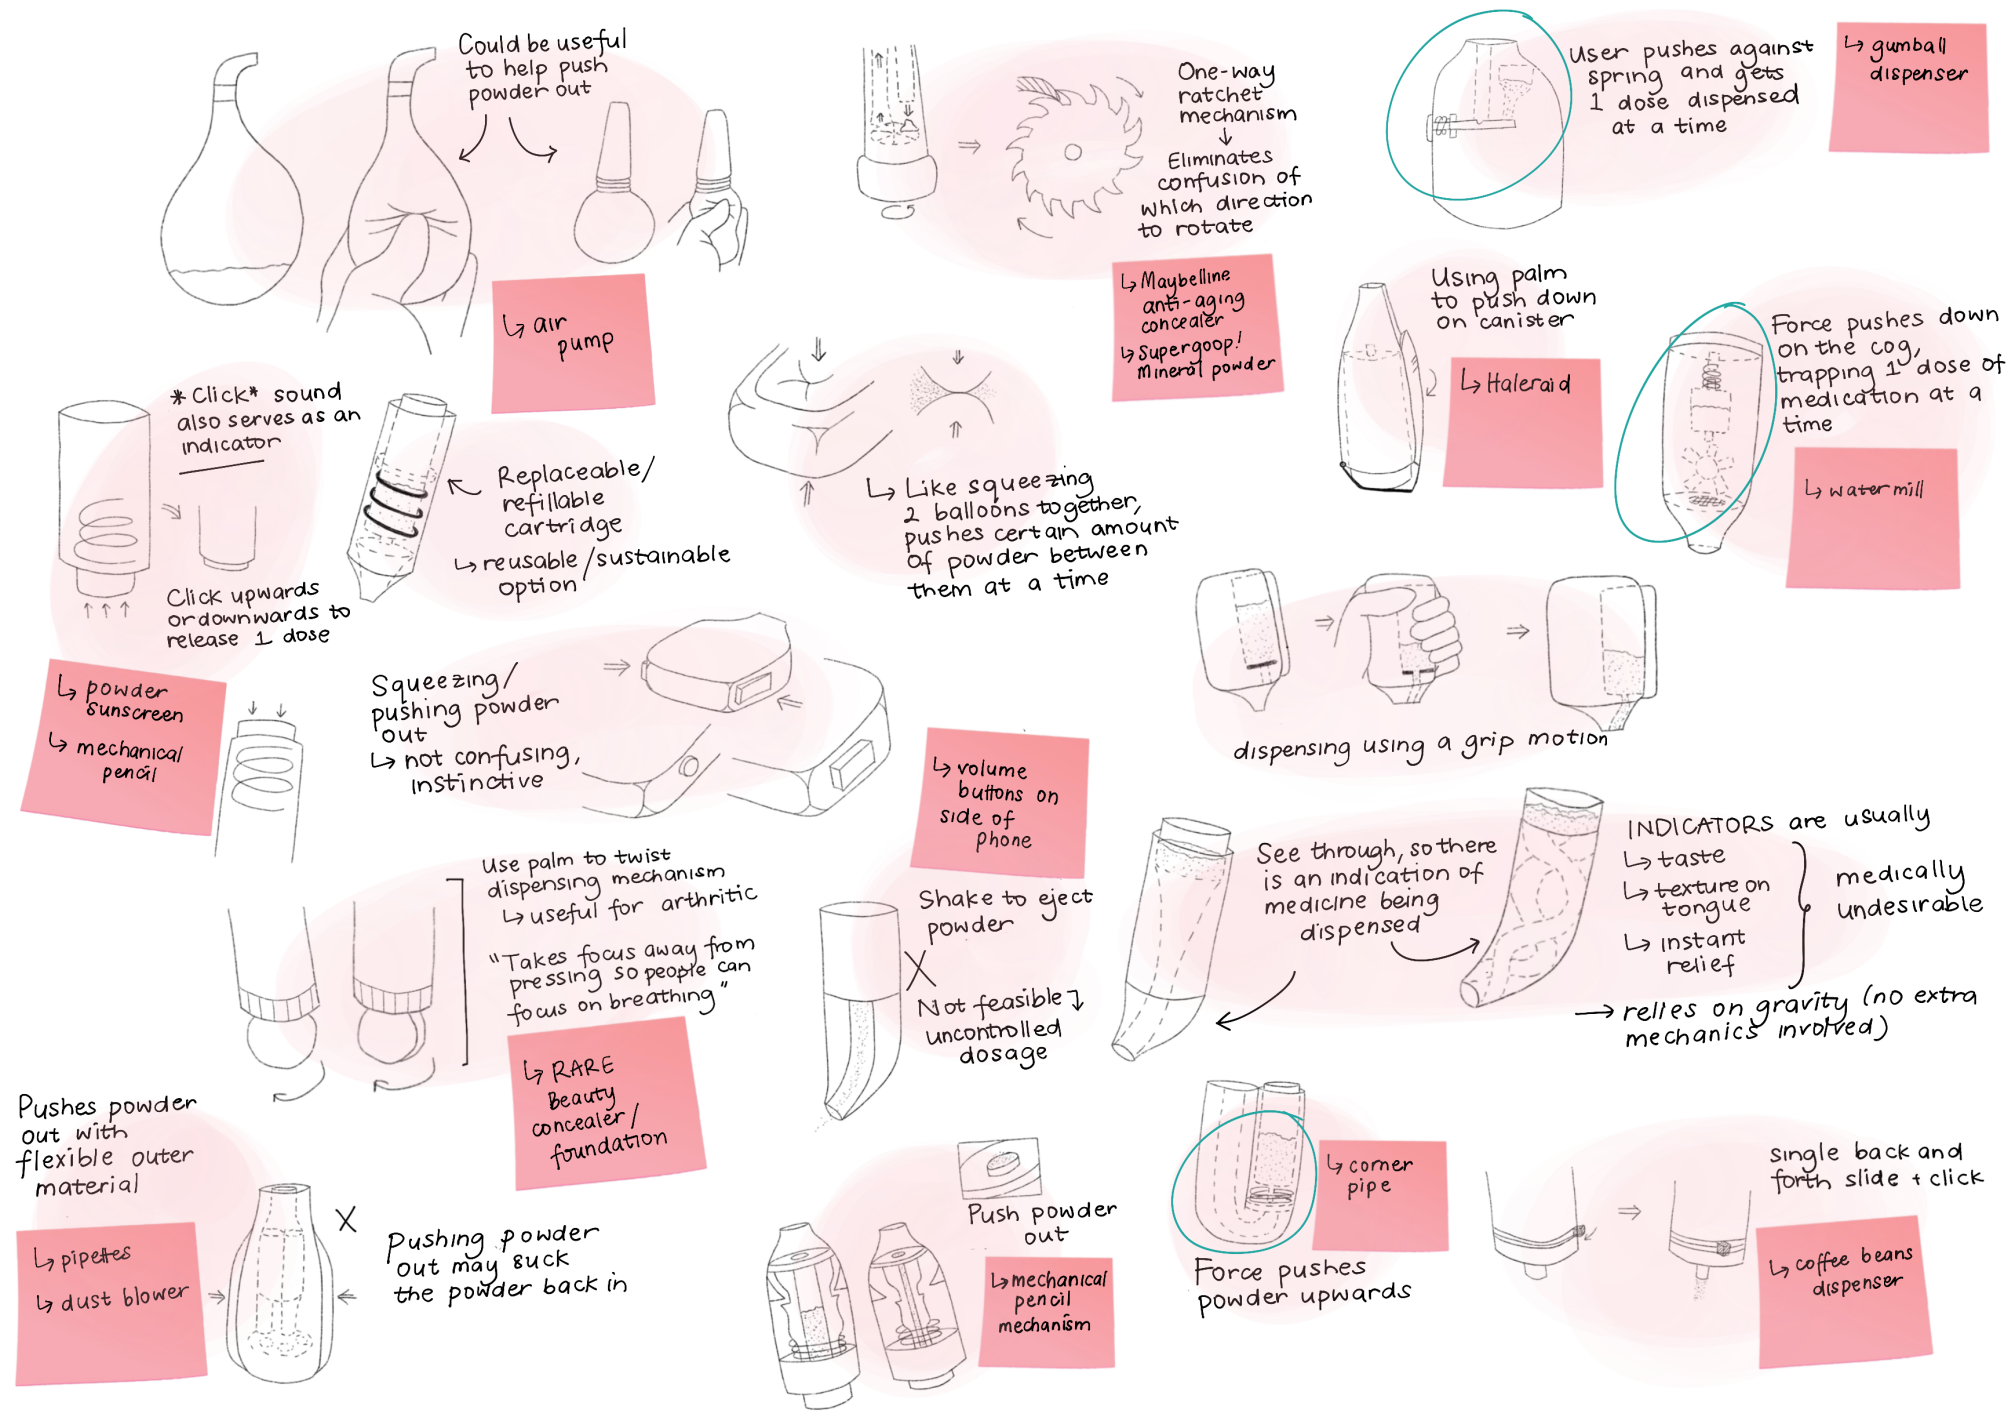 Could be useful
to help push
powder out
↳ air
pump
One-way
ratchet
mechanism
↓
Eliminates
confusion of
which direction
to rotate
↳ Maybelline
anti-aging
concealer
↳ Supergoop!
Mineral powder
User pushes against
spring and gets
1 dose dispensed
at a time
↳ gumball
dispenser
Using palm
to push down
on canister
↳ Haleraid
Force pushes down
on the cog,
trapping 1 dose of
medication at a
time
↳ watermill
*Click* sound
also serves as an
indicator
Click upwards
or downwards to
release 1 dose
↳ powder
sunscreen
↳ mechanical
pencil
Replaceable/
refillable
cartridge
↳ reusable/sustainable
option
↳ Like squeezing
2 balloons together,
pushes certain amount
of powder between
them at a time
Squeezing/
pushing powder
out
↳ not confusing,
instinctive
↳ volume
buttons on
side of
phone
dispensing using a grip motion
Use palm to twist
dispensing mechanism
↳ useful for arthritic
"Takes focus away from
pressing so people can
focus on breathing"
↳ RARE
Beauty
concealer/
foundation
Shake to eject
powder
X
Not feasible ↴
uncontrolled
dosage
See through, so there
is an indication of
medicine being
dispensed
INDICATORS are usually
↳ taste
↳ texture on
tongue
↳ instant
relief
medically
undesirable
→ relies on gravity (no extra
mechanics involved)
Pushes powder
out with
flexible outer
material
↳ pipettes
↳ dust blower
X
Pushing powder
out may suck
the powder back in
Push powder
out
↳ mechanical
pencil
mechanism
↳ corner
pipe
Force pushes
powder upwards
single back and
forth slide + click
↳ coffee beans
dispenser